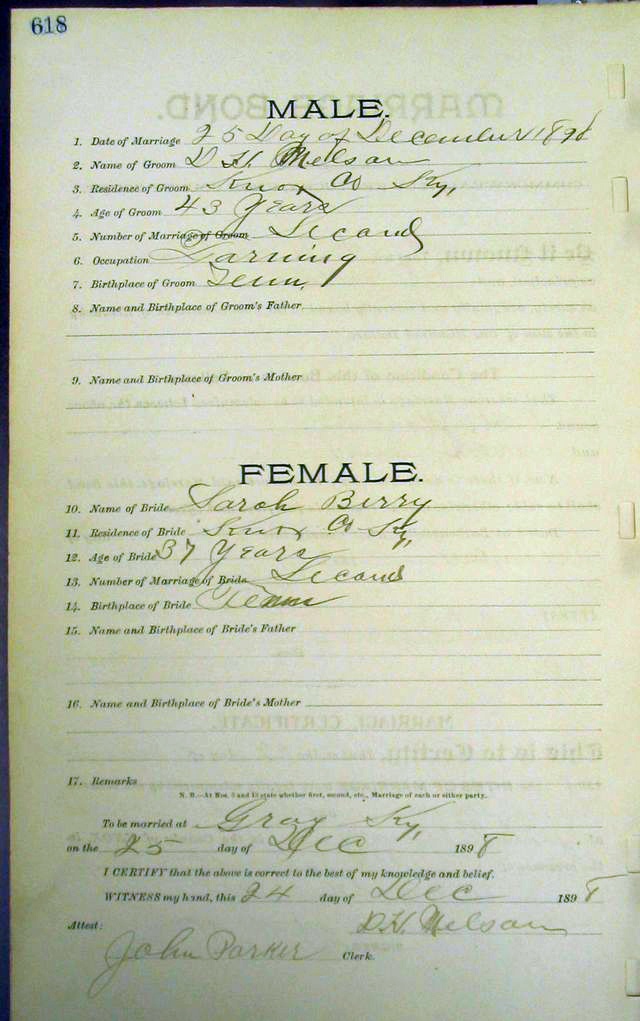 618
MALE.
1. Date of Marriage 25 Day of December 1898
2. Name of Groom D. H. Melson
3. Residence of Groom Knox Co Ky,
4. Age of Groom 43 Years
5. Number of Marriage of Groom Second
6. Occupation Farming
7. Birthplace of Groom Tenn,
8. Name and Birthplace of Groom's Father
9. Name and Birthplace of Groom's Mother
FEMALE.
10. Name of Bride Sarah Berry
11. Residence of Bride Knox Co Ky,
12. Age of Bride 37 Years
13. Number of Marriage of Bride Second
14. Birthplace of Bride Tenn
15. Name and Birthplace of Bride's Father
16. Name and Birthplace of Bride's Mother
17. Remarks
N. B.—At Nos. 5 and 13 state whether first, second, etc., Marriage of each or either party.
To be married at Gray Ky,
on the 25 day of Dec 1898
I CERTIFY that the above is correct to the best of my knowledge and belief.
WITNESS my hand, this 24 day of Dec 1898
Attest: D. H. Melson
John Parker Clerk.